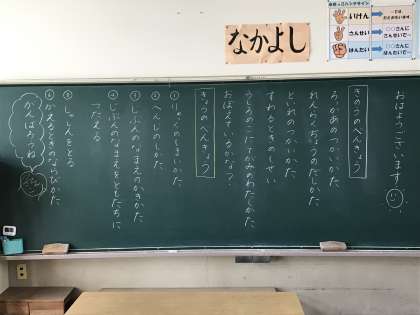 なかよし
いけん
さんせい
はんたい
おはようございます
きのうのべんきょう
ろっかあのつかいかた
れんらくぶくろのだしかた
といれのつかいかた
すわるときのしせい
うしろのこに、かみのわたしかた
おぼえているかな?
きょうのべんきょう
① りゅっくのしまいかた
② へんじのしかた
③ じぶんのなまえのかきかた
④ じぶんのなまえをともだちに
つたえる
⑤ しゃしんをとる
⑥ かえるときのならびかた
がんばろうね